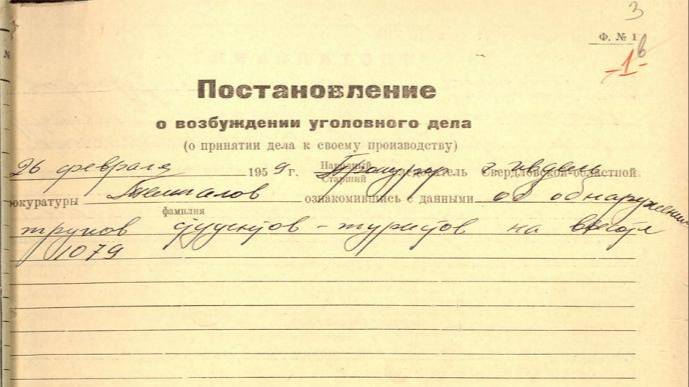 3
Ф. № 1
-1-
Постановление
о возбуждении уголовного дела
(о принятии дела к своему производству)
26 февраля 1959 г. Народный Старший Прокурор г. Ивдель Свердловской областной
рокуратуры Темпалов ознакомившись с данными об обнаружении
фамилия
трупов студентов-туристов на высоте
1079